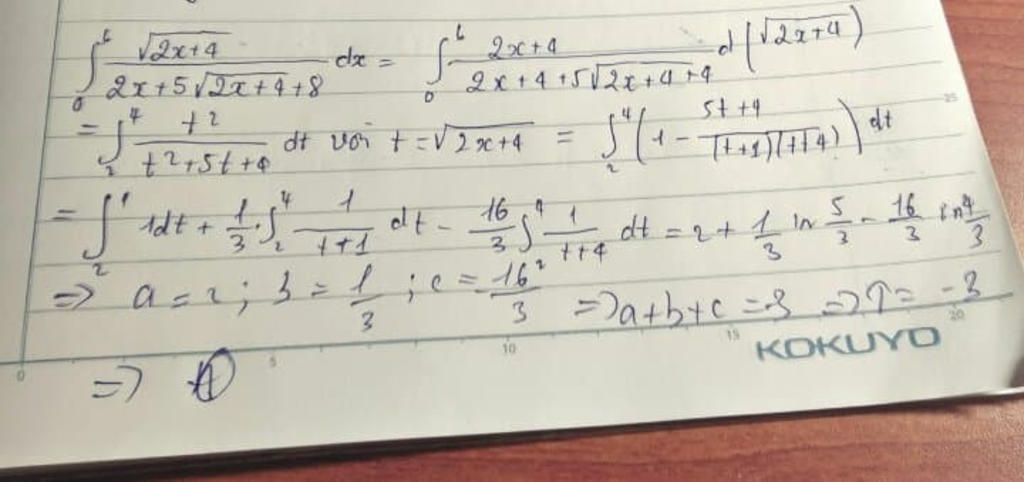 ∫₀⁶ √(2x+4) / (2x+5√(2x+4)+8) dx = ∫₀⁶ (2x+4) / (2x+4+5√(2x+4)+4) d(√(2x+4))
= ∫₂⁴ t² / (t²+5t+4) dt với t=√(2x+4) = ∫₂⁴ (1 - (5t+4) / ((t+1)(t+4))) dt
= ∫₂⁴ 1dt + 1/3 · ∫₂⁴ 1/(t+1) dt - 16/3 ∫₂⁴ 1/(t+4) dt = 2 + 1/3 ln 5/3 - 16/3 ln 4/3
=> a = 2; b = 1/3; c = -16/3 => a+b+c = -3 => T = -3
=> A
KOKUYO
0 5 10 15 20
25